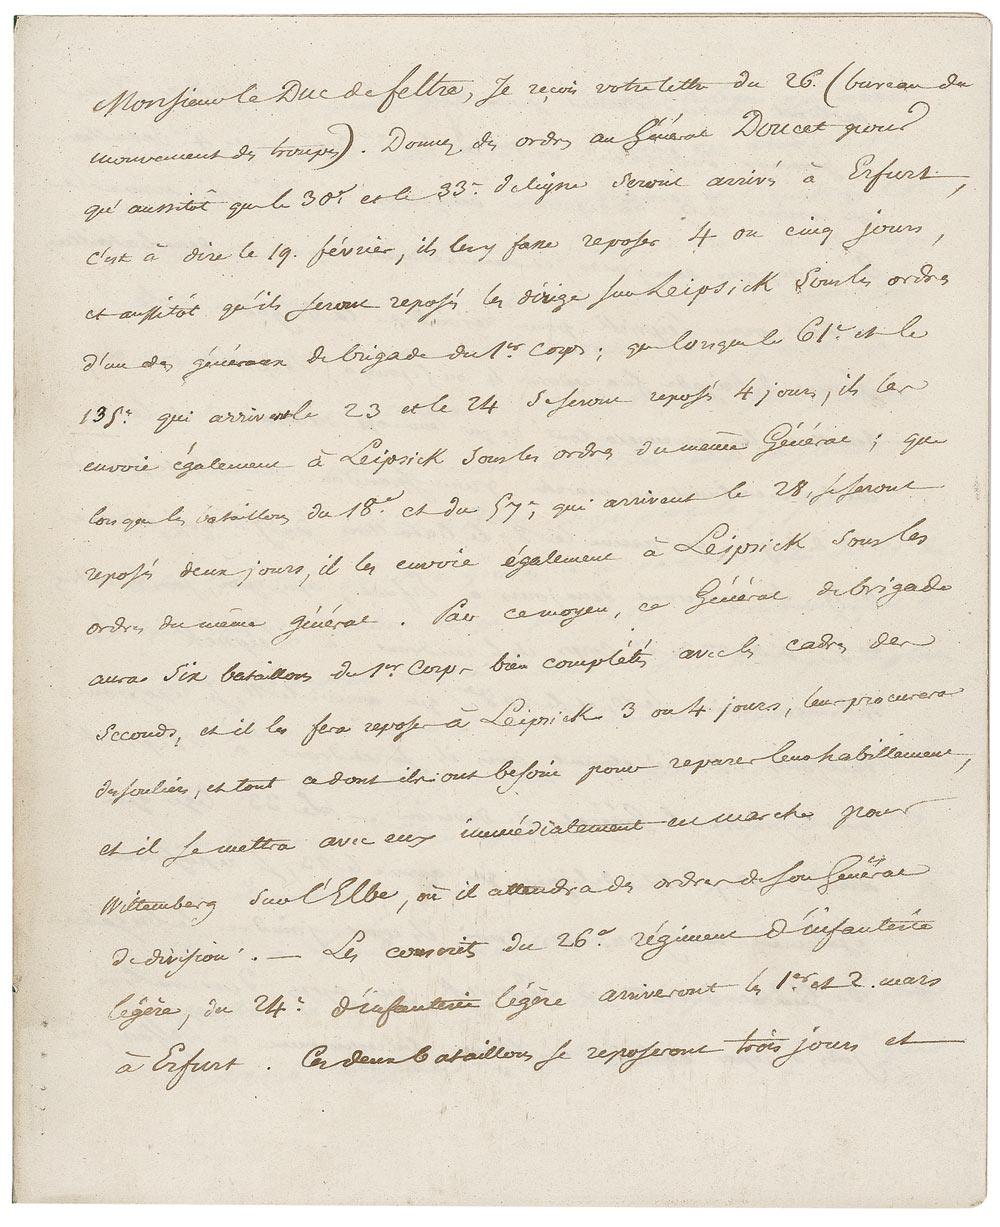 Monsieur le Duc de feltre, Je reçois votre lettre du 26. (bureau du
mouvement des troupes). Donnez des ordres au Général Doucet pour
qu'aussitôt que le 30e. et le 33e. de ligne seront arrivés à Erfurt,
c'est à dire le 19. février, il les y fasse reposer 4 ou cinq jours,
et aussitôt qu'ils seront reposés les dirige sur Leipsick sous les ordres
d'un des généraux de brigade du 1er. corps; que lorsque le 61e. et le
135e. qui arrivent le 23 et le 24 se seront reposés 4 jours, il les
envoie également à Leipsick sous les ordres du même Général; que
lorsque les bataillons du 18e. et du 57e., qui arrivent le 28, se seront
reposés deux jours, il les envoie également à Leipsick sous les
ordres du même général. Par ce moyen, ce Général de brigade
aura six bataillons du 1er. Corps bien complétés avec les cadres des
seconds, et il les fera reposer à Leipsick 3 ou 4 jours, leur procurera
des souliers, et tout ce dont ils ont besoin pour reparer leur habillement,
et il se mettra avec eux immédiatement en marche pour
Wittemberg sur l'Elbe, où il attendra des ordres de son Général
de division. — Les conscrits du 26e. régiment d'infanterie
légère, du 24e. d'infanterie légère arriveront les 1er. et 2. mars
à Erfurt. Ces deux bataillons se reposeront trois jours et